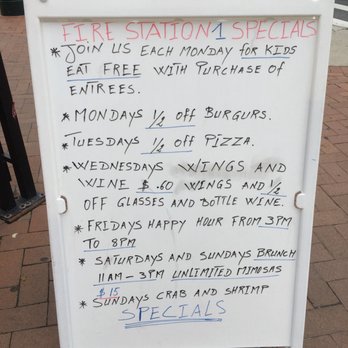 FIRE STATION 1 SPECIALS
* JOIN US EACH MONDAY FOR KIDS
EAT FREE WITH PURCHASE OF
ENTREES.
* MONDAYS 1/2 OFF BURGURS.
* TUESDAYS 1/2 OFF PIZZA.
* WEDNESDAYS WINGS AND
WINE $.60 WINGS AND 1/2
OFF GLASSES AND BOTTLE WINE.
* FRIDAYS HAPPY HOUR FROM 3PM
TO 8PM
* SATURDAYS AND SUNDAYS BRUNCH
11AM - 3PM UNLIMITED MIMOSAS
$15
* SUNDAYS CRAB AND SHRIMP
SPECIALS